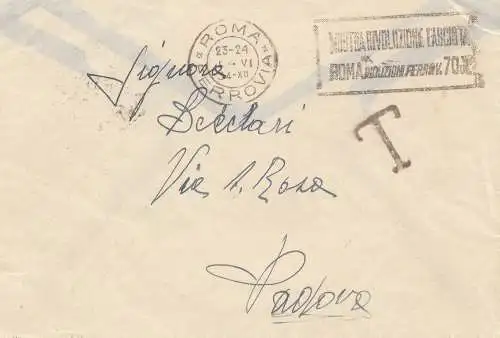 * ROMA *
FERROVIA
23-24
VI
XII
MOSTRA RIVOLUZIONE FASCISTA
ROMA RIDUZIONI FERROV. 70%
T
Signora
Via S. Rosa
Padova